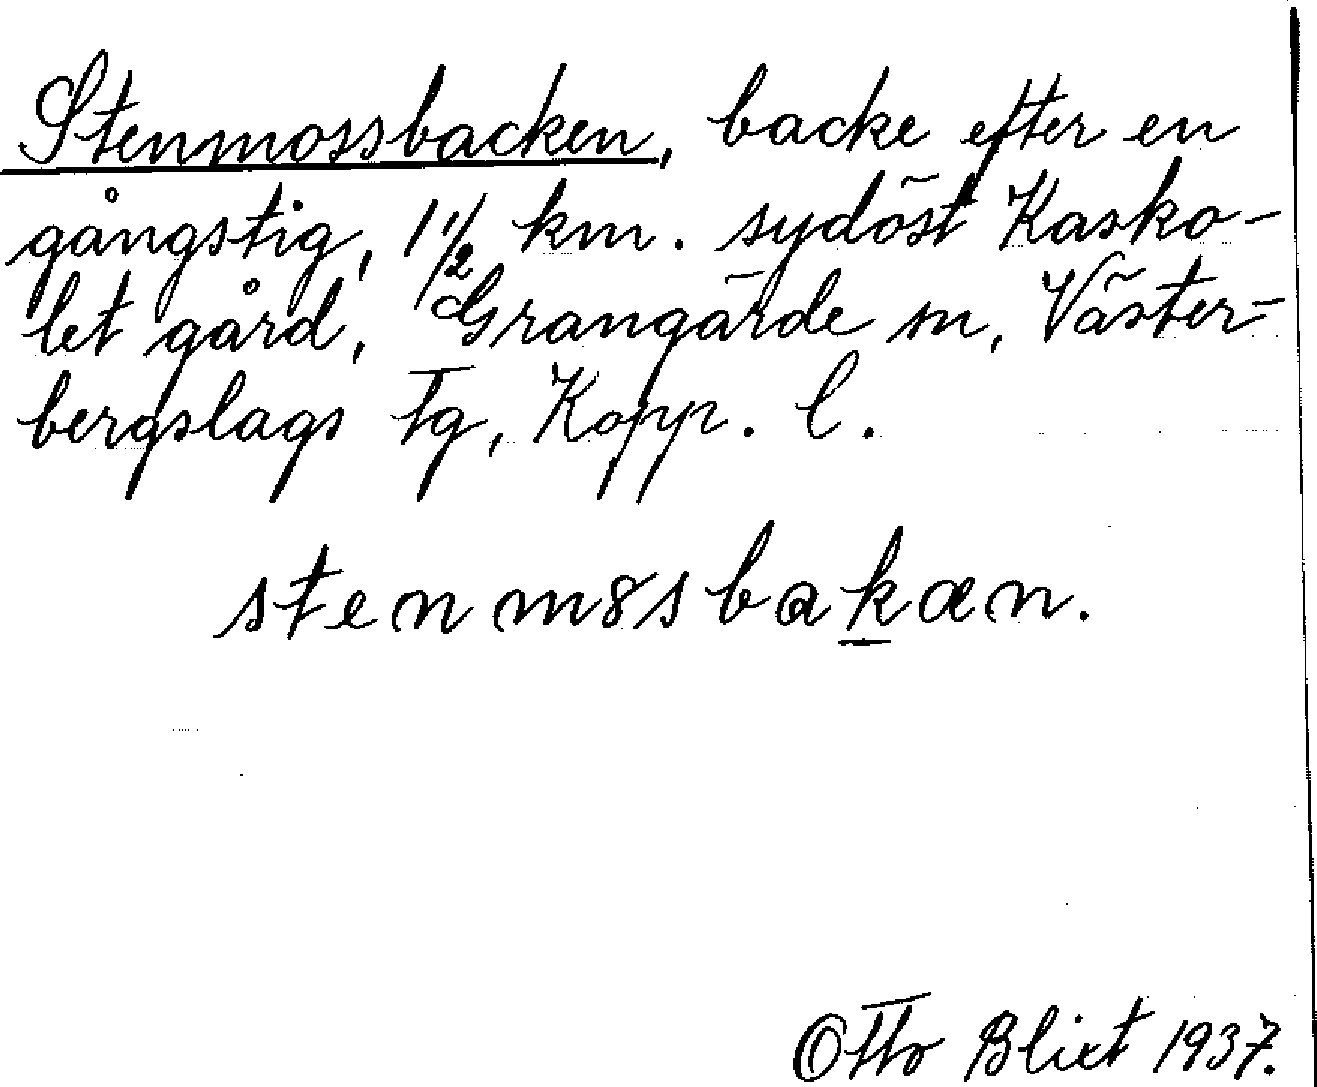 Stenmossbacken, backe efter en
gångstig, 1 1/2 km. sydöst Kasko-
let gård, Grangärde sn, Väster-
bergslags tg, Kopp. l.
stenmɞsbakæn.
Otto Blixt 1937.